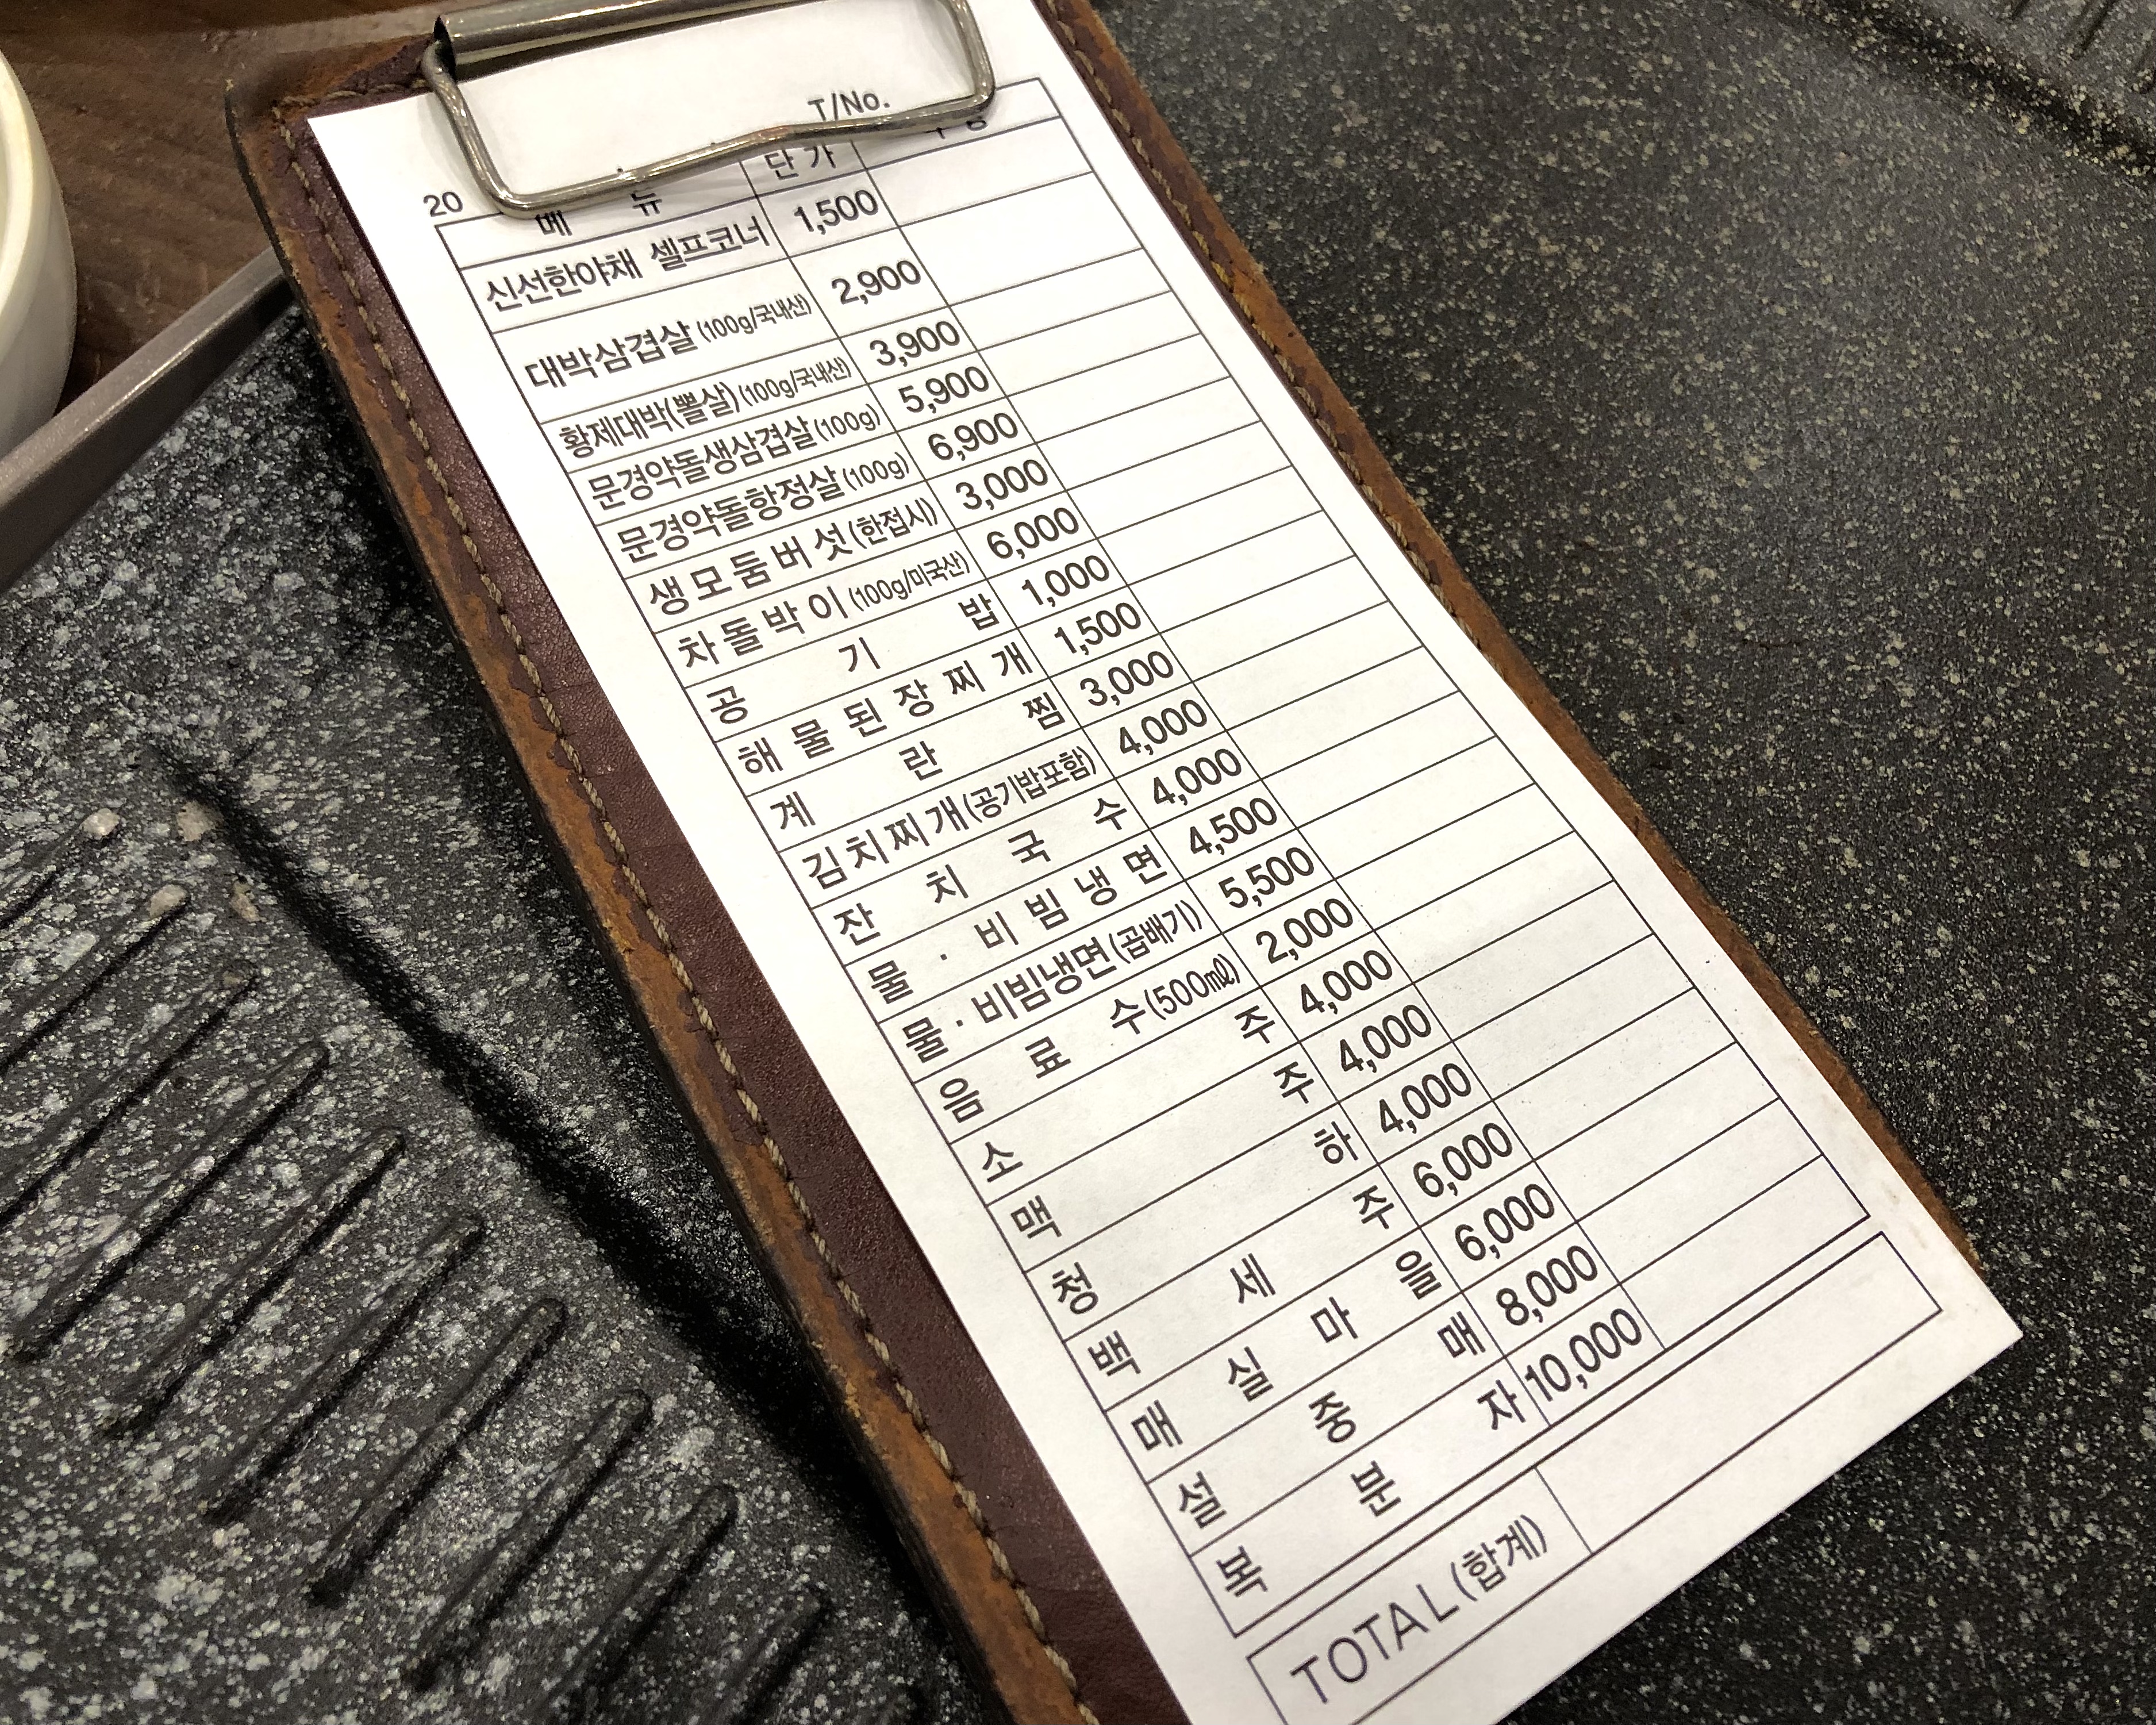 T/No.
20
메 뉴 단 가
신선한야채 셀프코너 1,500
대박삼겹살 (100g/국내산) 2,900
황제대박(뽈살) (100g/국내산) 3,900
문경약돌생삼겹살 (100g) 5,900
문경약돌항정살 (100g) 6,900
생모둠버섯 (한접시) 3,000
차돌박이 (100g/미국산) 6,000
공 기 밥 1,000
해 물 된 장 찌 개 1,500
계 란 찜 3,000
김치찌개 (공기밥포함) 4,000
잔 치 국 수 4,000
물 · 비 빔 냉 면 4,500
물 · 비빔냉면 (곱배기) 5,500
음 료 수 (500㎖) 2,000
소 주 4,000
맥 주 4,000
청 하 4,000
백 세 주 6,000
매 실 마 을 6,000
설 중 매 8,000
복 분 자 10,000
TOTAL (합계)